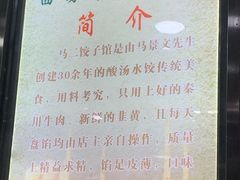 简介
马二饺子馆是由马景文先生
创建30余年的酸汤水饺传统美
食，用料考究，只用上好的秦
川牛肉、新鲜的韭黄，且每天
盘馅均由店主亲自操作，质量
上精益求精，馅足皮薄，口味